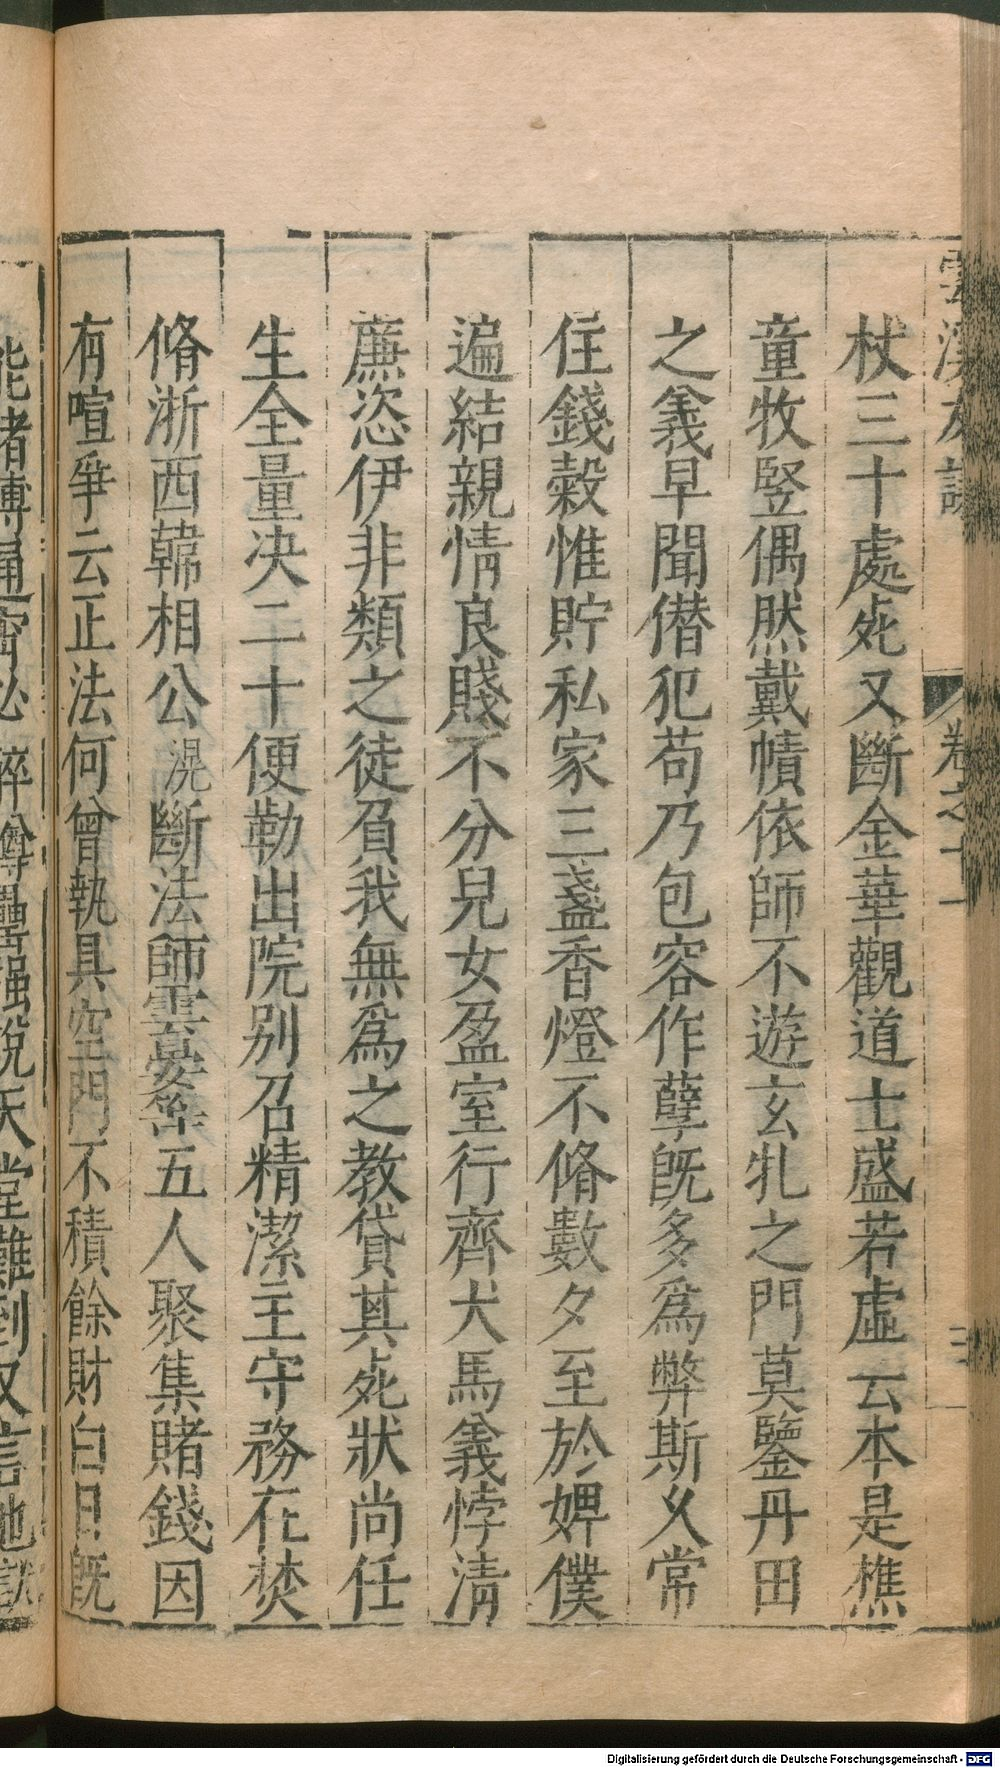 雲溪友議 卷之十一
杖三十處死又斷金華觀道士盛若虛云本是樵
童牧竪偶然戴幘依師不遊玄牝之門莫鑒丹田
之義早聞僣犯苟乃包容作孽旣多爲弊斯久常
住錢穀惟貯私家三盞香燈不脩數夕至於婢僕
遍結親情良賤不分兒女盈室行齊犬馬義悖清
亷恣伊非類之徒負我無爲之教貸其死狀尚任
生全量决二十便勒出院别召精潔主守務在焚
脩浙西韓相公滉斷法師雲晏等五人聚集賭錢因
有喧爭云正法何曾執具空門不積餘財白日旣
能賭博通宵必醉罇罍強説天堂難到又言地獄
Digitalisierung gefördert durch die Deutsche Forschungsgemeinschaft - DFG